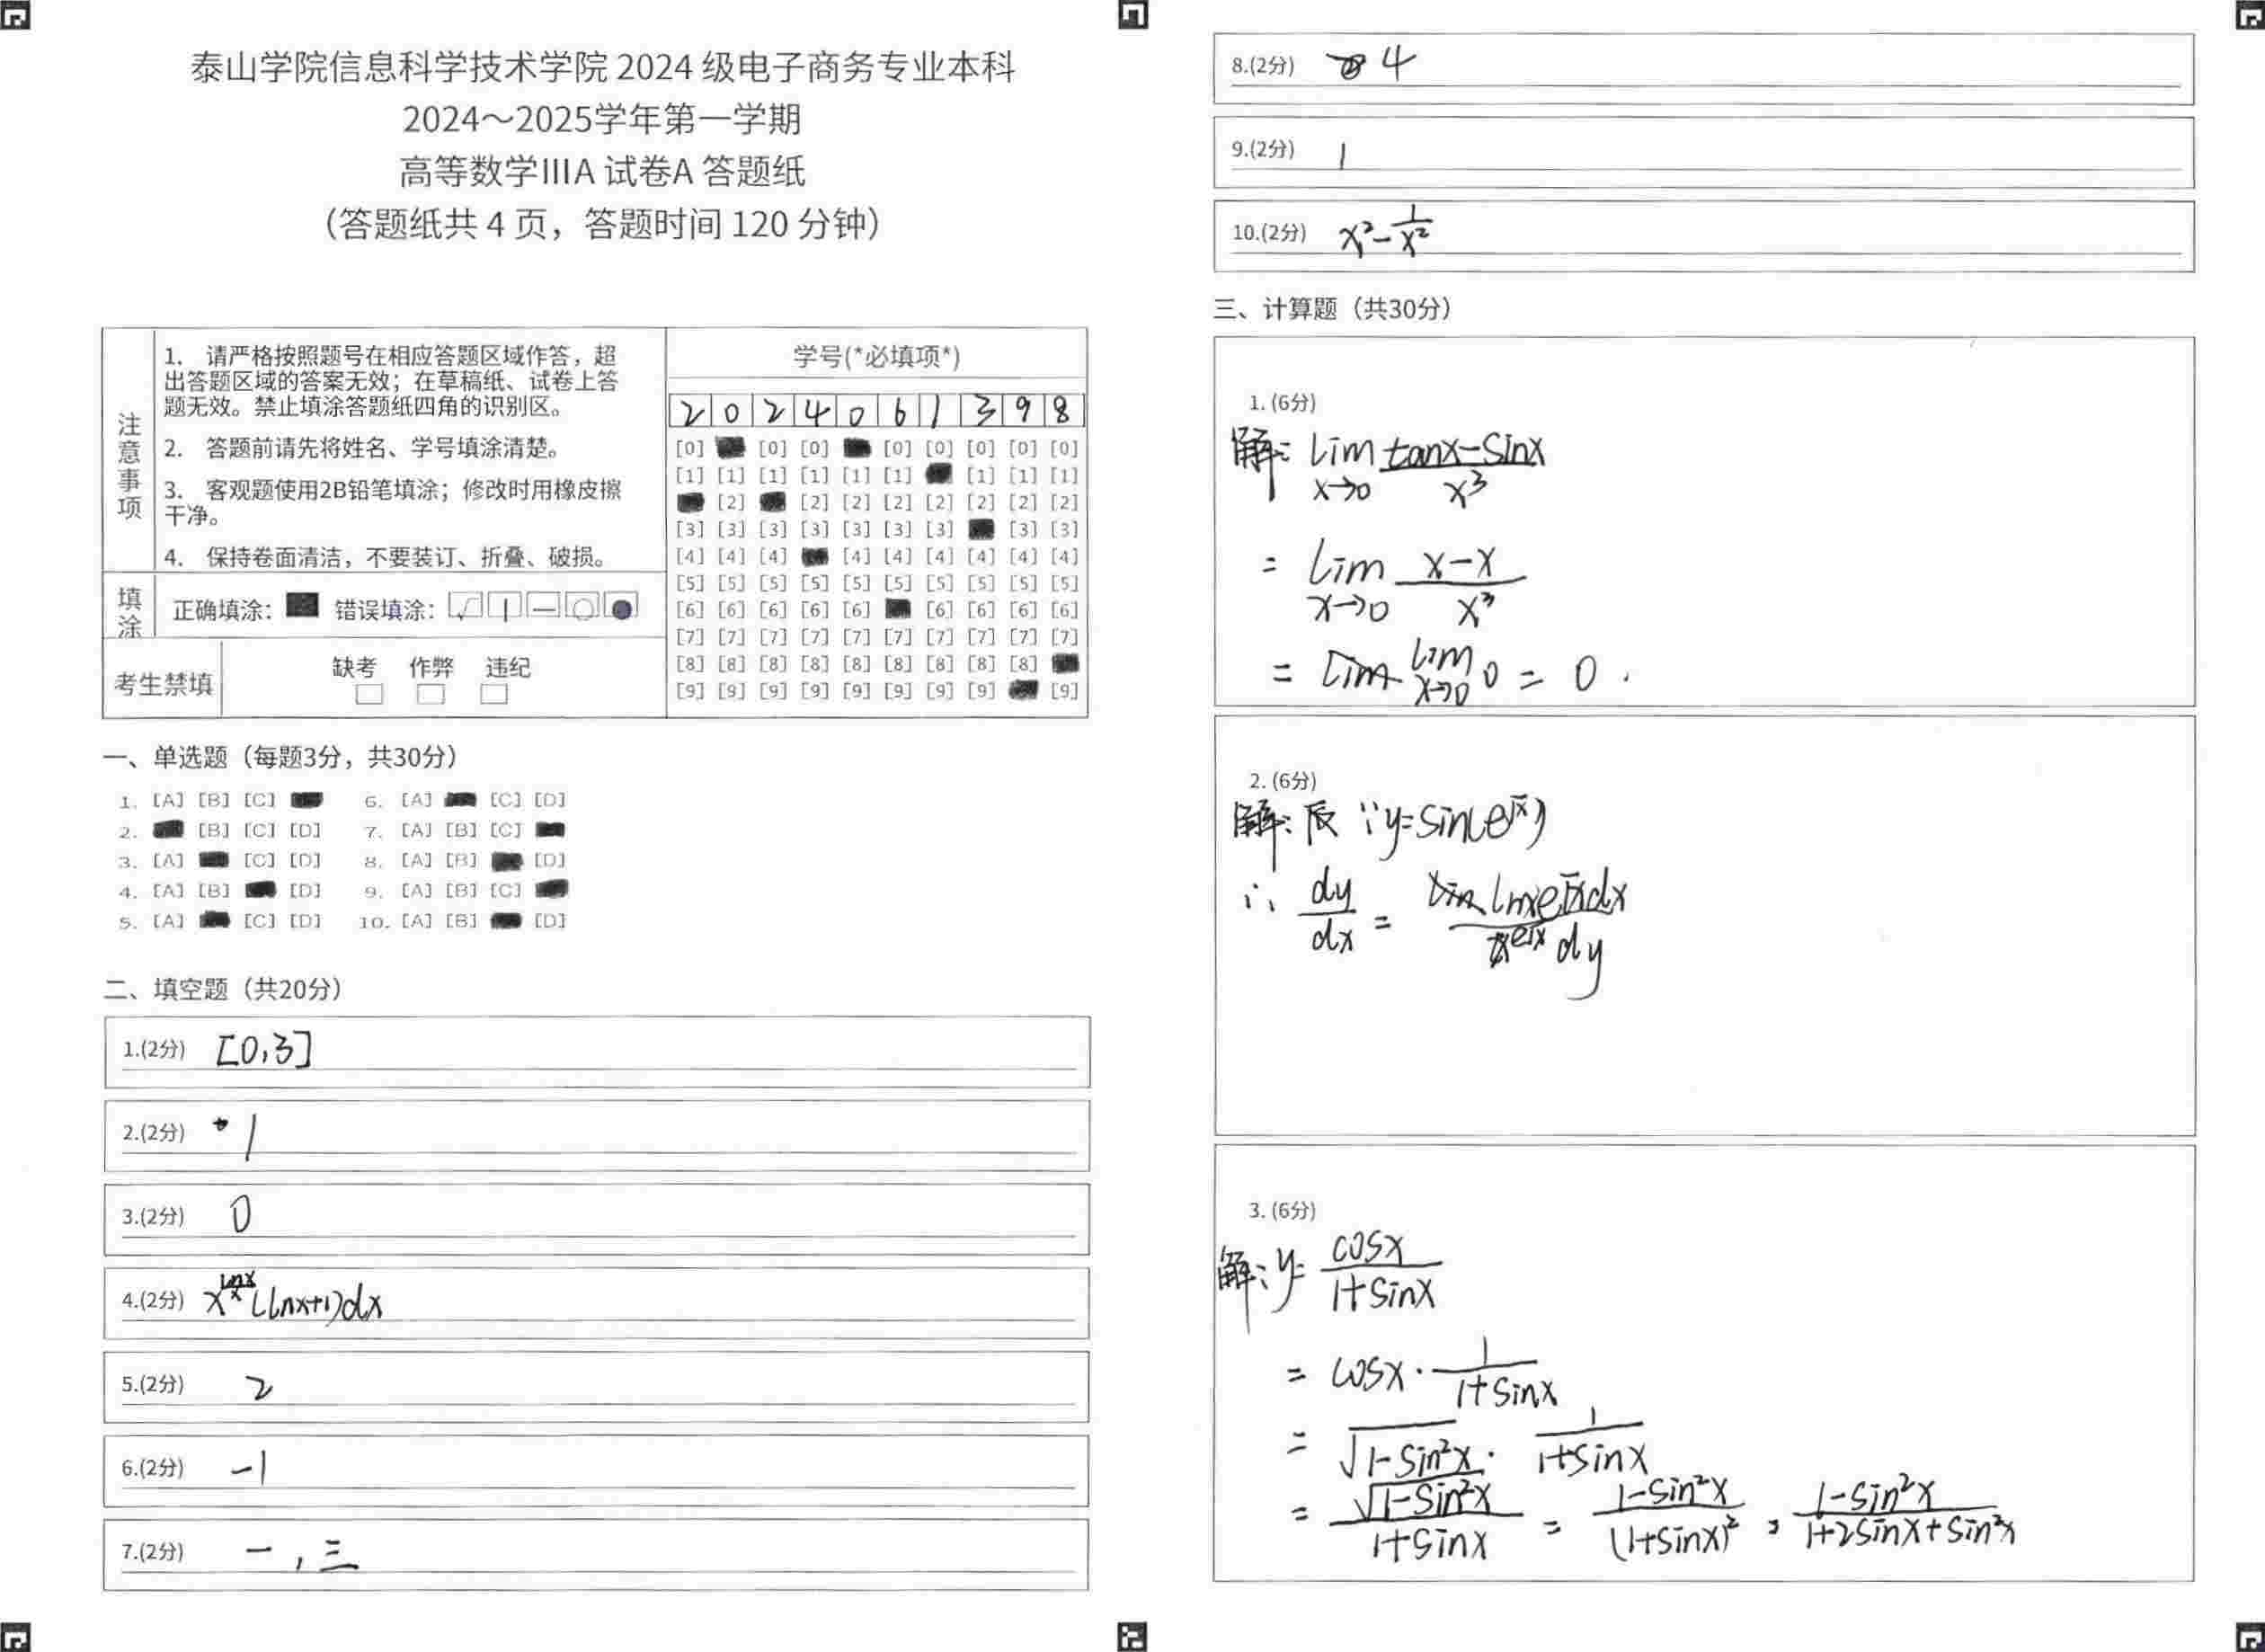 泰山学院信息科学技术学院 2024 级电子商务专业本科
2024～2025学年第一学期
高等数学IIIA 试卷A 答题纸
（答题纸共 4 页，答题时间 120 分钟）
注意事项
1. 请严格按照题号在相应答题区域作答，超
出答题区域的答案无效；在草稿纸、试卷上答
题无效。禁止填涂答题纸四角的识别区。
2. 答题前请先将姓名、学号填涂清楚。
3. 客观题使用2B铅笔填涂；修改时用橡皮擦
干净。
4. 保持卷面清洁，不要装订、折叠、破损。
填涂 正确填涂： 错误填涂：
考生禁填 缺考 作弊 违纪
学号(*必填项*)
2 0 2 4 0 6 1 3 9 8
[0] [0] [0] [0] [0] [0] [0] [0]
[1] [1] [1] [1] [1] [1] [1] [1] [1]
[2] [2] [2] [2] [2] [2] [2] [2]
[3] [3] [3] [3] [3] [3] [3] [3] [3]
[4] [4] [4] [4] [4] [4] [4] [4] [4]
[5] [5] [5] [5] [5] [5] [5] [5] [5] [5]
[6] [6] [6] [6] [6] [6] [6] [6] [6]
[7] [7] [7] [7] [7] [7] [7] [7] [7] [7]
[8] [8] [8] [8] [8] [8] [8] [8] [8]
[9] [9] [9] [9] [9] [9] [9] [9] [9]
一、单选题（每题3分，共30分）
1. [A] [B] [C] 6. [A] [C] [D]
2. [B] [C] [D] 7. [A] [B] [C]
3. [A] [C] [D] 8. [A] [B] [D]
4. [A] [B] [D] 9. [A] [B] [C]
5. [A] [C] [D] 10. [A] [B] [D]
二、填空题（共20分）
1.(2分) [0,3]
2.(2分) 1
3.(2分) 0
4.(2分) x^x (lnx+1)dx
5.(2分) 2
6.(2分) -1
7.(2分) 一，三
8.(2分) 4
9.(2分) 1
10.(2分) x²-1/x²
三、计算题（共30分）
1. (6分)
解: lim x→0 (tanx-sinx)/x³
= lim x→0 (x-x)/x³
= lim x→0 0 = 0.
2. (6分)
解: ∵y=sin(e^√x)
∴ dy/dx =
3. (6分)
解: y= cosx/(1+sinx)
= cosx·1/(1+sinx)
= √(1-sin²x)·1/(1+sinx)
= √(1-sin²x)/(1+sinx) = (1-sin²x)/(1+sinx)² = (1-sin²x)/(1+2sinx+sin²x)